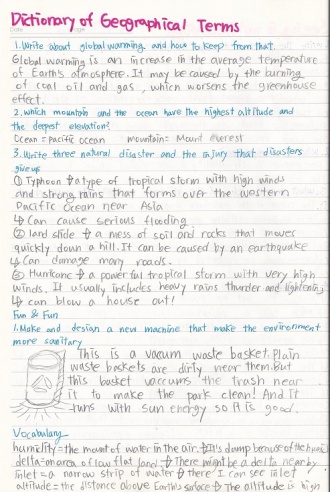 Dictionary of Geographical Terms
1.Write about global warming, and how to keep from that.
Global warming is an increase in the average temperature
of Earth's atmosphere. It may be caused by the burning
of coal oil and gas, which worsens the greenhouse
effect.
2.Which mountain and the ocean have the highest altitude and
the deepest elevation?
Ocean = pacific ocean mountain= Mount everest
3.Write three natural disaster and the injury that disasters
give us
① Typhoon → a type of tropical storm with high winds
and strong rains that forms over the western
Pacific Ocean near Asia
↳ Can cause serious flooding
② land slide → a mess of soil and rocks that moves
quickly down a hill. It can be caused by an earthquake
↳ Can damage many roads.
③ Hurricane → a powerful tropical storm with very high
winds. It usually includes heavy rains thunder and lightening
↳ can blow a house out!
Fun & Fun
1.Make and design a new machine that make the environment
more sanitary
This is a vacum waste basket. Plain
waste baskets are dirty near them. But
this basket vaccums the trash near
it to make the park clean! And It
runs with sun energy so it is good.
Vocabulary
humidity = the mount of water in the air. → It's damp because of the humid
delta = an area of low flat land → There might be a delta nearby
inlet = a narrow strip of water → there I can see inlet
altitude = the distance above Earth's surface → The altitude is high